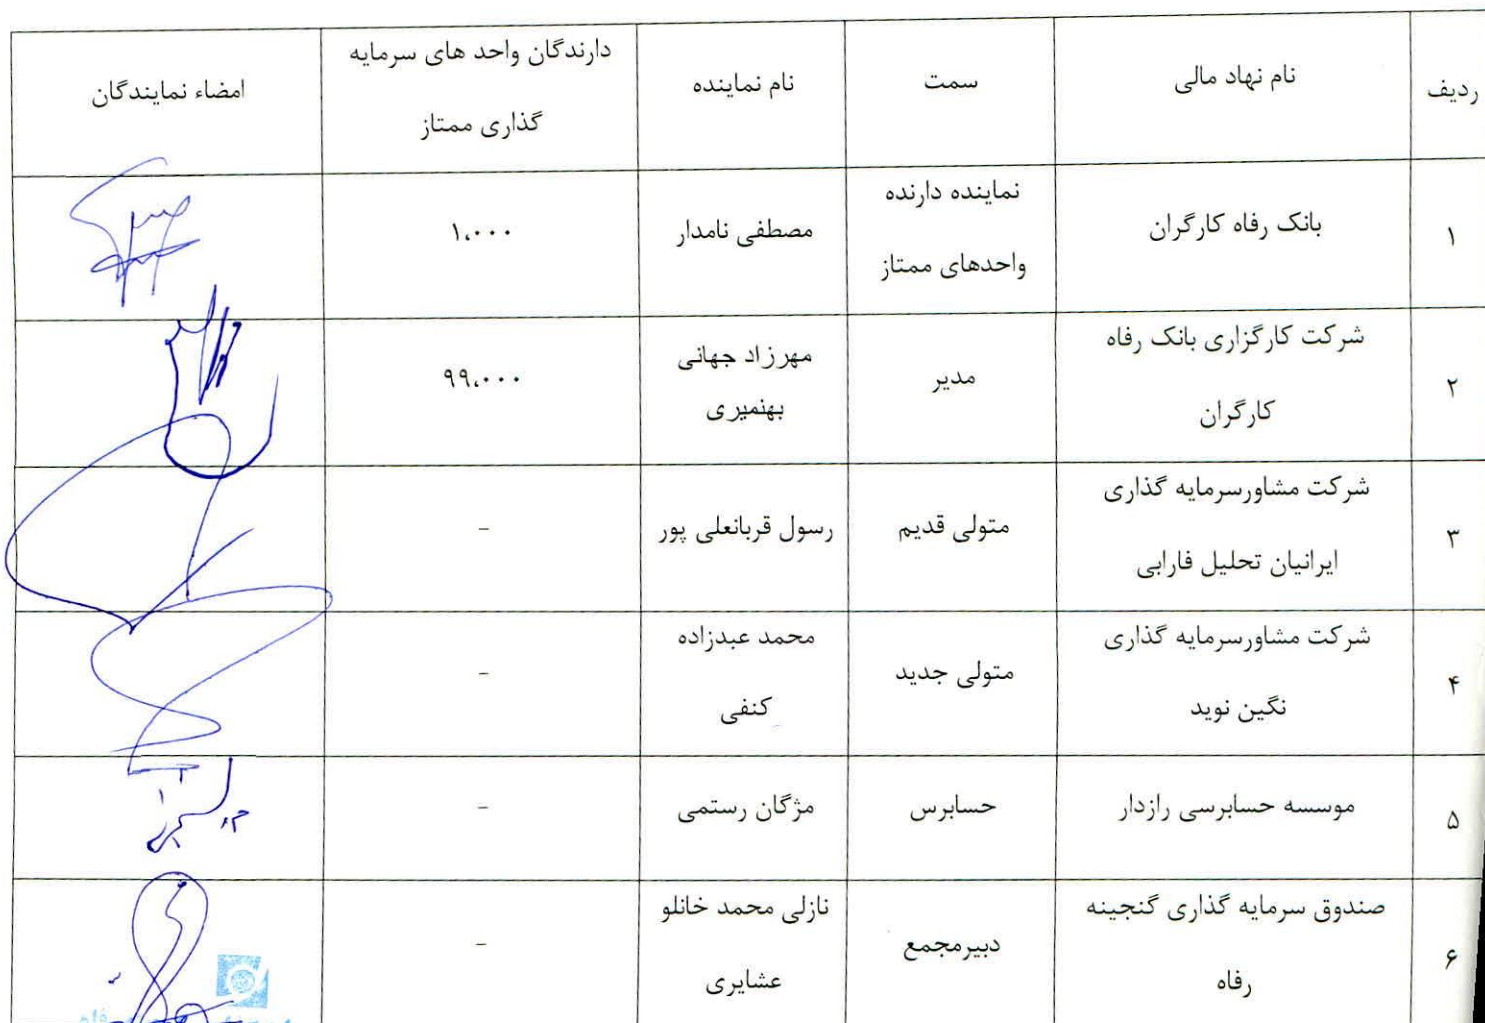 ردیف
نام نهاد مالی
سمت
نام نماینده
دارندگان واحد های سرمایه
گذاری ممتاز
امضاء نمایندگان
۱
بانک رفاه کارگران
نماینده دارنده
واحدهای ممتاز
مصطفی نامدار
۱،۰۰۰
۲
شرکت کارگزاری بانک رفاه
کارگران
مدیر
مهرزاد جهانی
بهنمیری
۹۹،۰۰۰
۳
شرکت مشاورسرمایه گذاری
ایرانیان تحلیل فارابی
متولی قدیم
رسول قربانعلی پور
-
۴
شرکت مشاورسرمایه گذاری
نگین نوید
متولی جدید
محمد عبدزاده
کنفی
-
۵
موسسه حسابرسی رازدار
حسابرس
مژگان رستمی
-
۶
صندوق سرمایه گذاری گنجینه
رفاه
دبیرمجمع
نازلی محمد خانلو
عشایری
-
رفاه